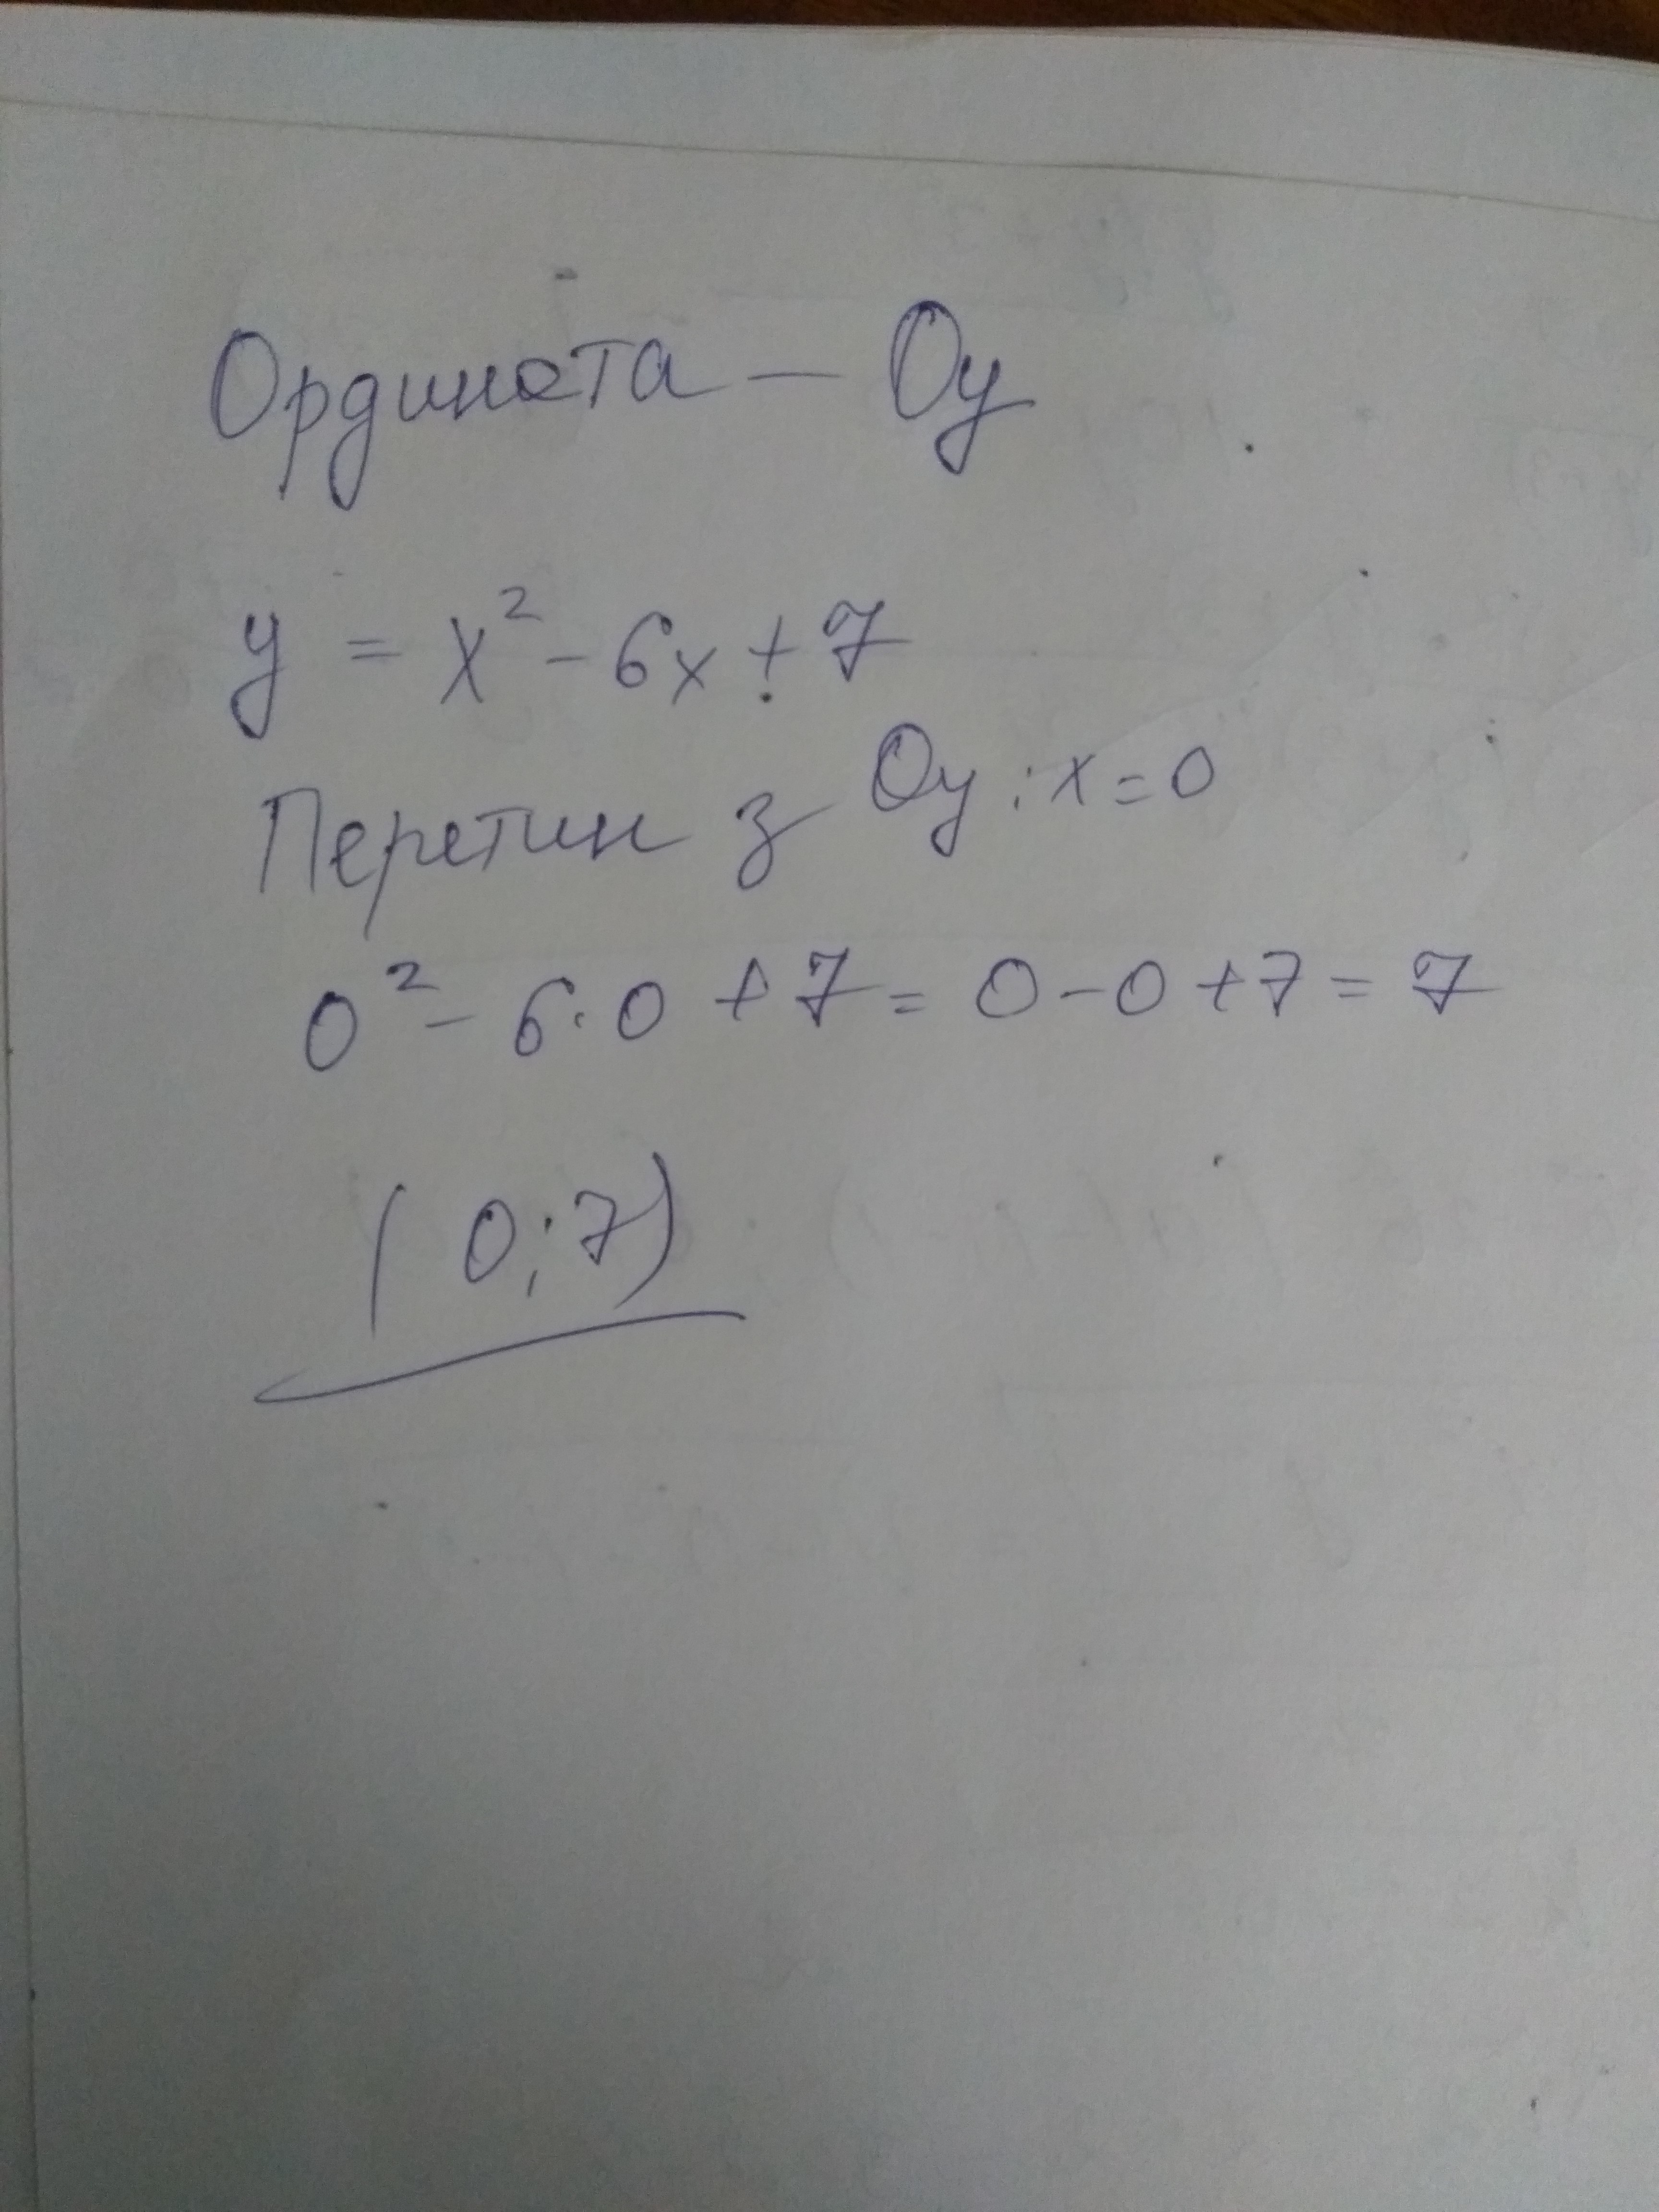 Ордината - Oy
y = x² - 6x + 7
Перетин з Oy : x = 0
0² - 6·0 + 7 = 0 - 0 + 7 = 7
( 0; 7)